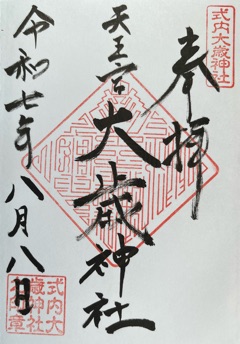 式内大歳神社
奉拝
天王宮
大歳神社
令和七年八月八日
式内大
歳神社